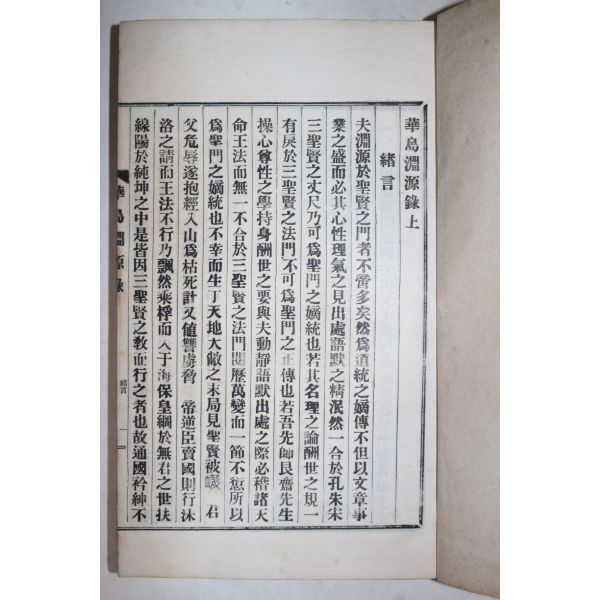 華島淵源錄上
緖言
夫淵源於聖賢之門者不啻多矣然爲道統之嫡傳不但以文章事
業之盛而必其心性理氣之見出處語默之精泯然一合於孔朱宋
三聖賢之丈尺乃可爲聖門之嫡統也若其名理之論酬世之規一
有戾於三聖賢之法門不可爲聖門之正傳也若吾先師艮齋先生
操心尊性之學持身酬世之要與夫動靜語默出處之際必稽諸天
命王法而無一不合於三聖賢之法門閱歷萬變而一節不愆所以
爲聖門之嫡統也不幸而生丁天地大敝之末局見聖賢被 君
父危辱遂抱經入山爲枯死計又値讐虜脅 帝逆臣賣國則行沐
洛之請而王法不行乃飄然乘桴而入于海保皇綱於無君之世扶
線陽於純坤之中是皆因三聖賢之敎而行之者也故通國衿紳不
華島淵源錄
緖言
一